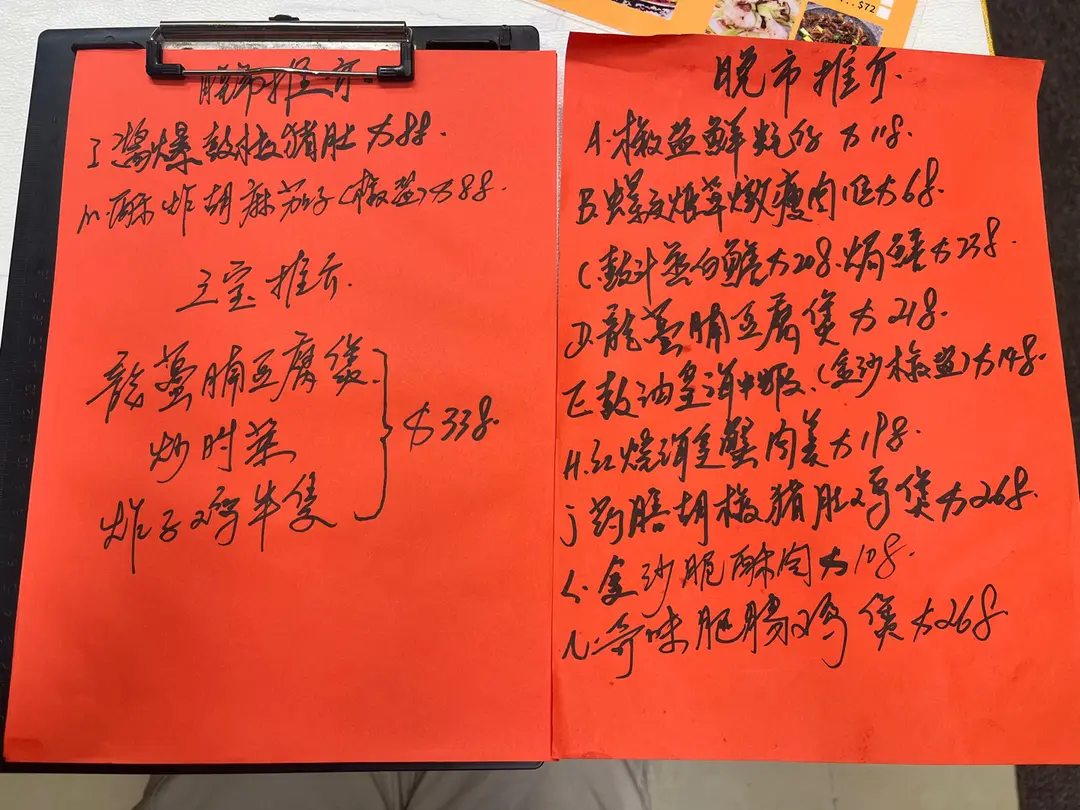 晚市推介.
I 酱爆鼓椒猪肚 $88.
M.酥炸胡麻茄子(椒盐)$88.
三宝推介.
龍躉腩豆腐煲
炒时菜
炸子鸡半隻
$338.
晚市推介.
A.椒盐鲜鱿 $118.
B. 煲瘦肉 $68.
C.豉汁蒸白鱔$208.焗鱔$238.
D.龍躉腩豆腐煲 $218.
E.豉油皇海中虾.(金沙椒盐)$148.
H.红烧海皇蟹肉羹$198.
J药膳胡椒猪肚鸡煲$268.
L.金沙脆酥肉$108.
N.奇味肥肠鸡煲$268
$72